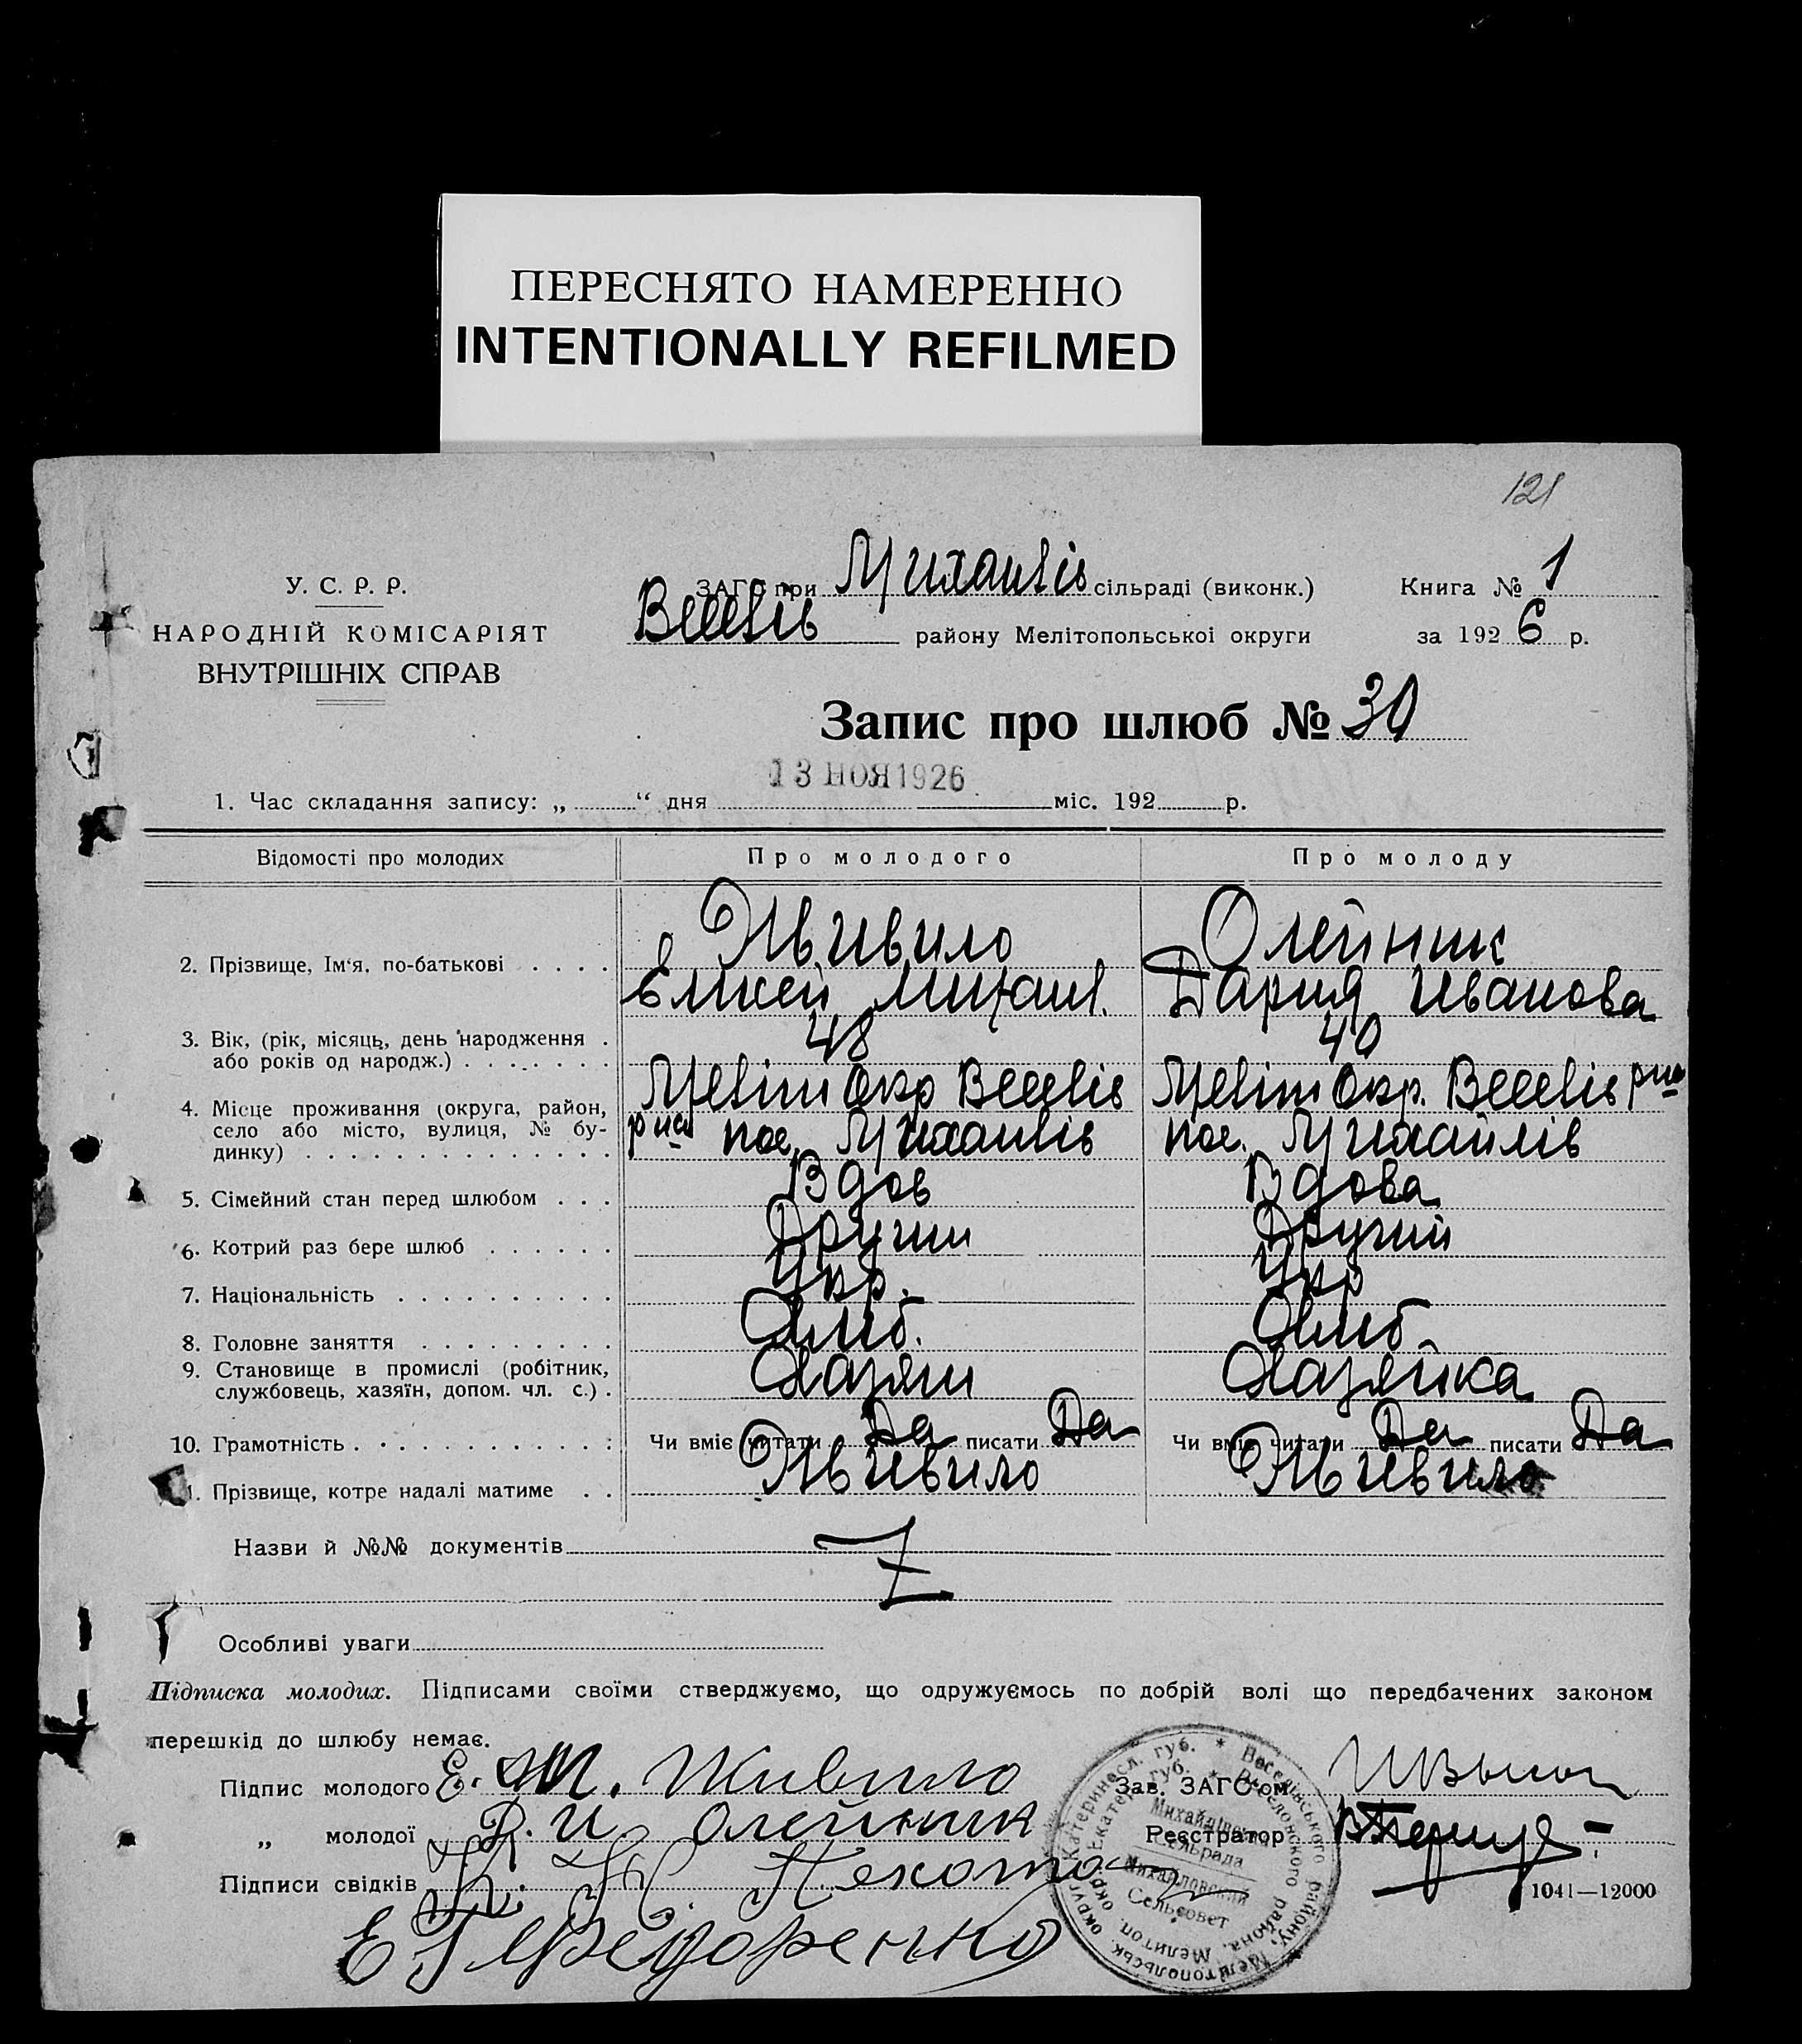 ПЕРЕСНЯТО НАМЕРЕННО
INTENTIONALLY REFILMED
121
У. С. Р. Р.
НАРОДНІЙ КОМІСАРІЯТ
ВНУТРІШНІХ СПРАВ
ЗАГС при Михайлів сільраді (виконк.)
Веселів району Мелітопольскоі округи
Книга № 1
за 1926 р.
Запис про шлюб № 30
13 НОЯ 1926
1. Час складання запису: „ “ дня міс. 192 р.
Відомості про молодих Про молодого Про молоду
2. Прізвище, Ім‘я, по-батькові Живило Олейник
Елисей Михаил. Дария Иванова
3. Вік, (рік, місяць, день народження або років од народж.) 48 40
4. Місце проживання (округа, район, село або місто, вулиця, № будинку) Меліт Окр Веселів Меліт Окр. Веселів р-на
р-на пос. Михайлів пос. Михайлів
5. Сімейний стан перед шлюбом Вдов Вдова
6. Котрий раз бере шлюб Другий Другий
7. Національність Укр. Укр
8. Головне заняття Хліб. Хліб.
9. Становище в промислі (робітник, службовець, хазяїн, допом. чл. с.) Хазяин Хазяйка
10. Грамотність Чи вміє читати Да писати Да Чи вміє читати Да писати Да
11. Прізвище, котре надалі матиме Живило Живило
Назви й №№ документів
Особливі уваги
Підписка молодих. Підписами своїми стверджуємо, що одружуємось по добрій волі що передбачених законом
перешкід до шлюбу немає.
Підпис молодого Е. М. Живило Зав. ЗАГС‘ом
„ молодої Д. И Олейник Реєстратор
Підписи свідків
Е Г Федоренко
1041—12000
Катериносл. губ. * Веселівського району, Мелітопольськ. округ
Екатер. губ. * Веселовского района, Мелитоп. окр.
Михайлівська
сільрада
Михайловский
Сельсовет